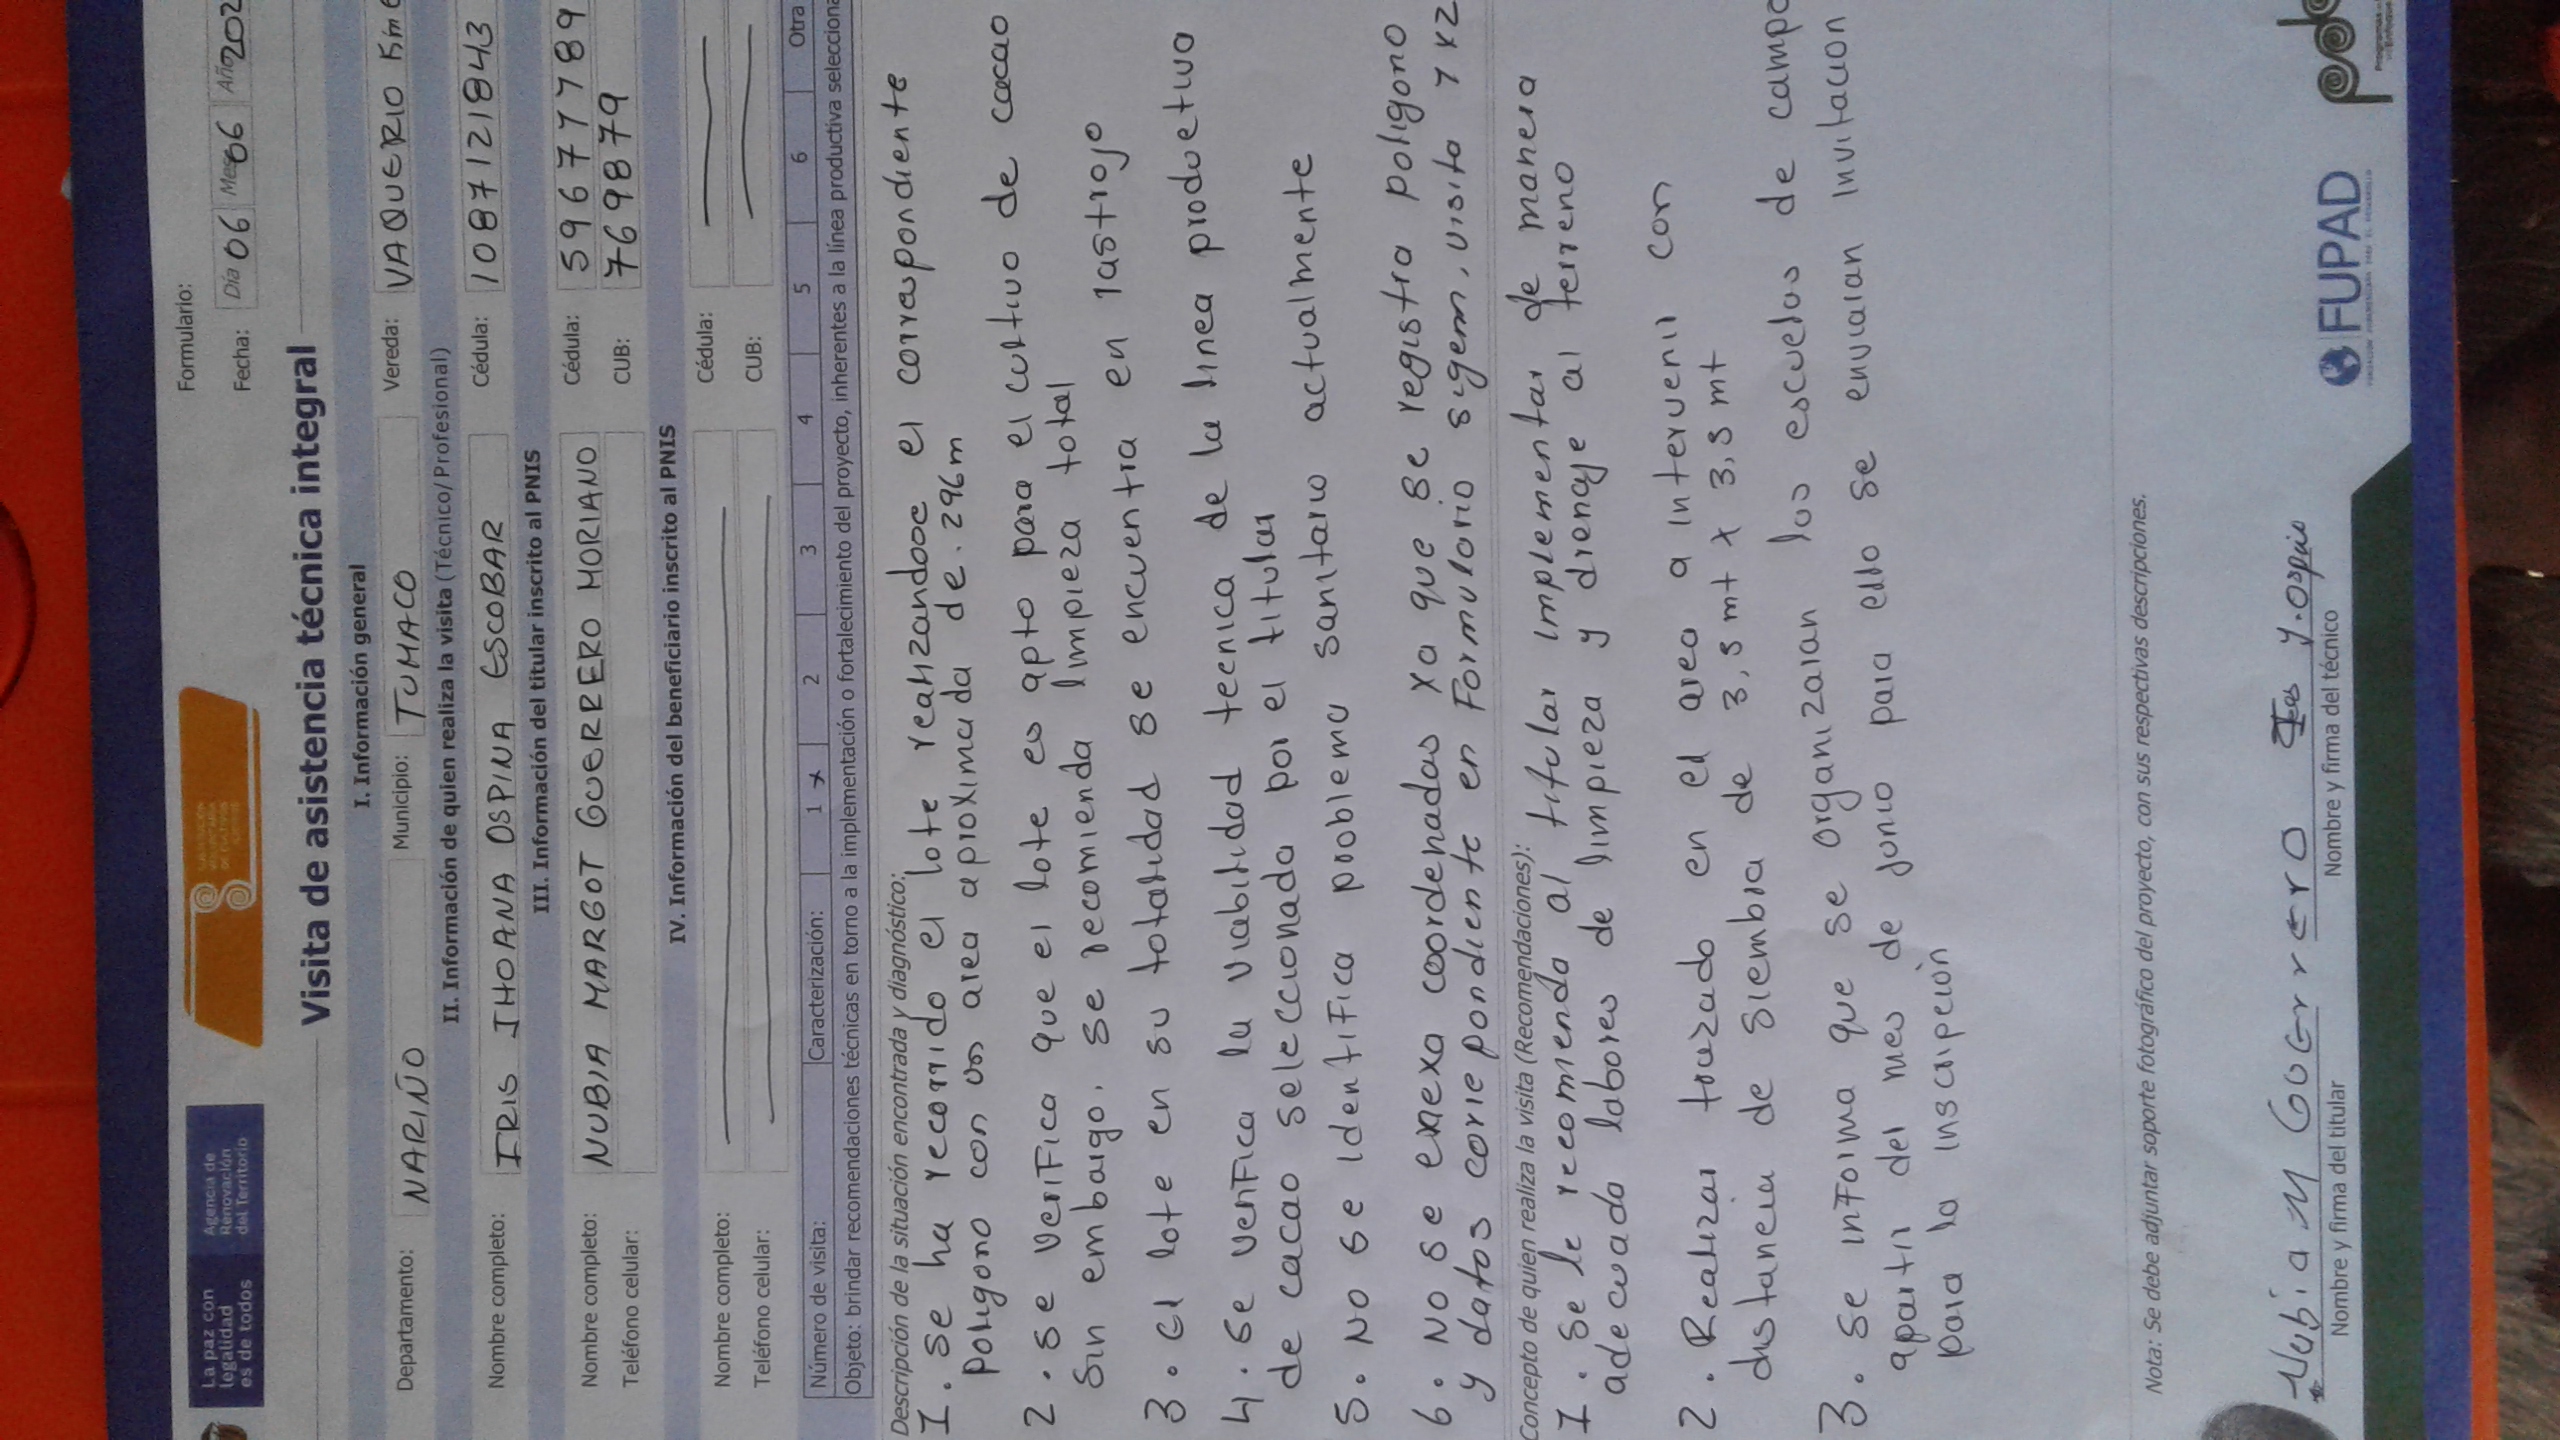 La paz con
legalidad
es de todos
Agencia de
Renovación
del Territorio
Formulario:
Fecha: Día 06 Mes 06 Año 202
Visita de asistencia técnica integral
I. Información general
Departamento: NARIÑO Municipio: TUMACO Vereda: VAQUERIO Km
II. Información de quien realiza la visita (Técnico/ Profesional)
Nombre completo: IRIS JHOANA OSPINA ESCOBAR Cédula: 1087121843
III. Información del titular inscrito al PNIS
Nombre completo: NUBIA MARGOT GUERRERO MORIANO Cédula: 59677789
Teléfono celular: CUB: 7698879
IV. Información del beneficiario inscrito al PNIS
Nombre completo: Cédula:
Teléfono celular: CUB:
Número de visita: Caracterización: 1 x 2 3 4 5 6 Otra
Objeto: brindar recomendaciones técnicas en torno a la implementación o fortalecimiento del proyecto, inherentes a la línea productiva selecciona
Descripción de la situación encontrada y diagnóstico:
1. se ha recorrido el lote realizandoce el correspondiente
poligono con un area aproximada de. 296m
2. se verifica que el lote es apto para el cultivo de cacao
sin embargo. se recomienda limpieza total
3. el lote en su totalidad se encuentra en rastrojo
4. se verifica la viabilidad tecnica de la linea productiva
de cacao seleccionada por el titular
5. No se identifica problema sanitario actualmente
6. No se enexa coordenadas xa que se registra poligono
y datos correspondiente en Formulario sygem, visita 1 x2
Concepto de quien realiza la visita (Recomendaciones):
1. se le recomienda al titular implementar de manera
adecuada labores de limpieza y drenaje al terreno
2. Realizar trazado en el area a intervenir con
distancia de siembra de 3,5 mt x 3,5 mt
3. se informa que se organizaran las escuelas de campo
apartir del mes de junio para ello se enviaran invitacion
para la inscripción
Nota: Se debe adjuntar soporte fotográfico del proyecto, con sus respectivas descripciones.
Nubia M Guerrero
Nombre y firma del titular
Nombre y firma del técnico
FUPAD